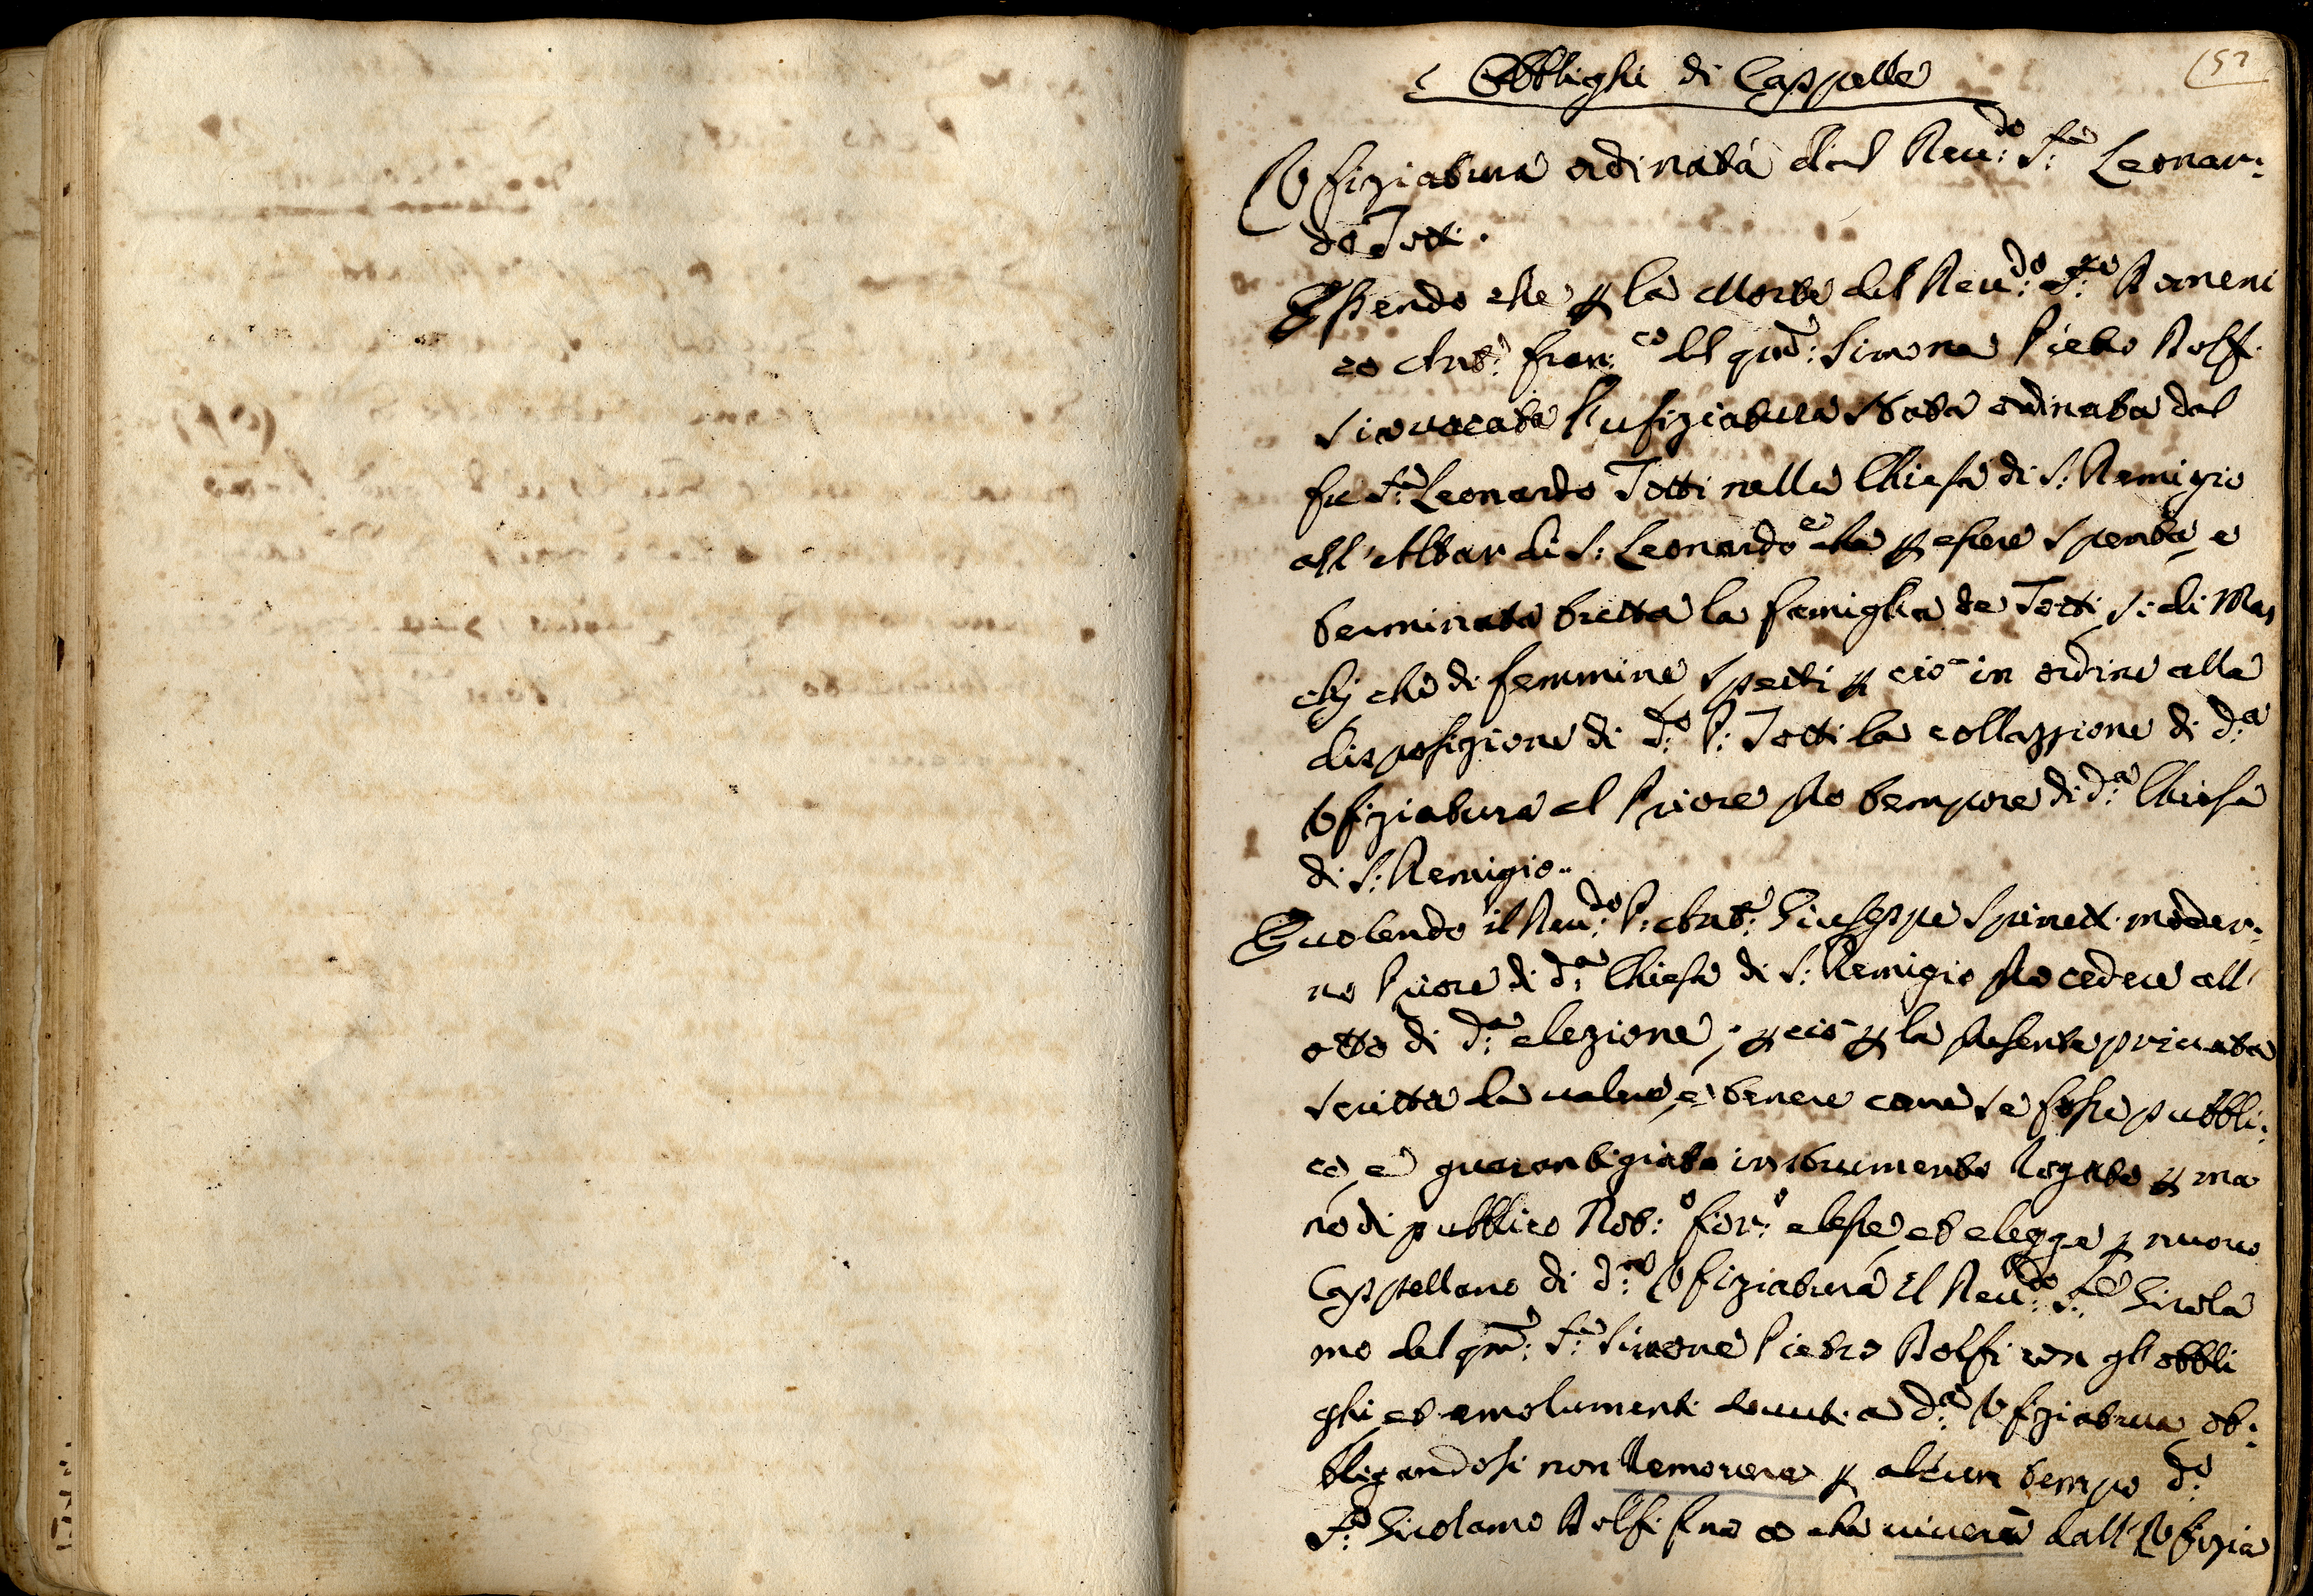 152
Obblighi di Cappelle
Vfiziatura ordinata dal Reu:do P:re Leonar:
do Totti.
Essendo che p la Morte del Reu:do P:re Domeni
co Ant:o Fran:co del qm: Simone Pietro Dolfi
si è uacata l'ufiziatura stata ordinata dal
fu P:re Leonardo Totti nella Chiesa di S: Remigio
all'Altar di S: Leonardo e che p essere spenta, e
terminata tutta la famiglia de Totti si di Mas
chj che di femmine, spetti p ciò in ordine alla
disposizione di d:o P: Totti la collazzione di d:a
Vfiziatura al Priore pro tempore di d:a Chiesa
di S: Remigio.
E uolendo il Reu:do P: Ant:o Giuseppe Spinett. moder:
no Priore di d:a Chiesa di S: Remigio procedere all'
atto di d:a elezione, p ciò p la presente priuata
scritta da ualere, e tenere come se fosse pubbli:
co, e guarantigiato instrumento rogato p ma
no di pubblico Not:o fior:o elesse, et elegge p nuouo
Cappellano di d:a Vfiziatura il Reu:do P:re Girola
mo del qm: S:r Simone Pietro Dolfi con gl'obbli
ghi, et emolumenti douuti a d:a Vfiziatura ob:
bligandosi non remouere p alcun tempo d:o
P:re Girolamo Dolfi fino a che uiuerà dall'Vfizia